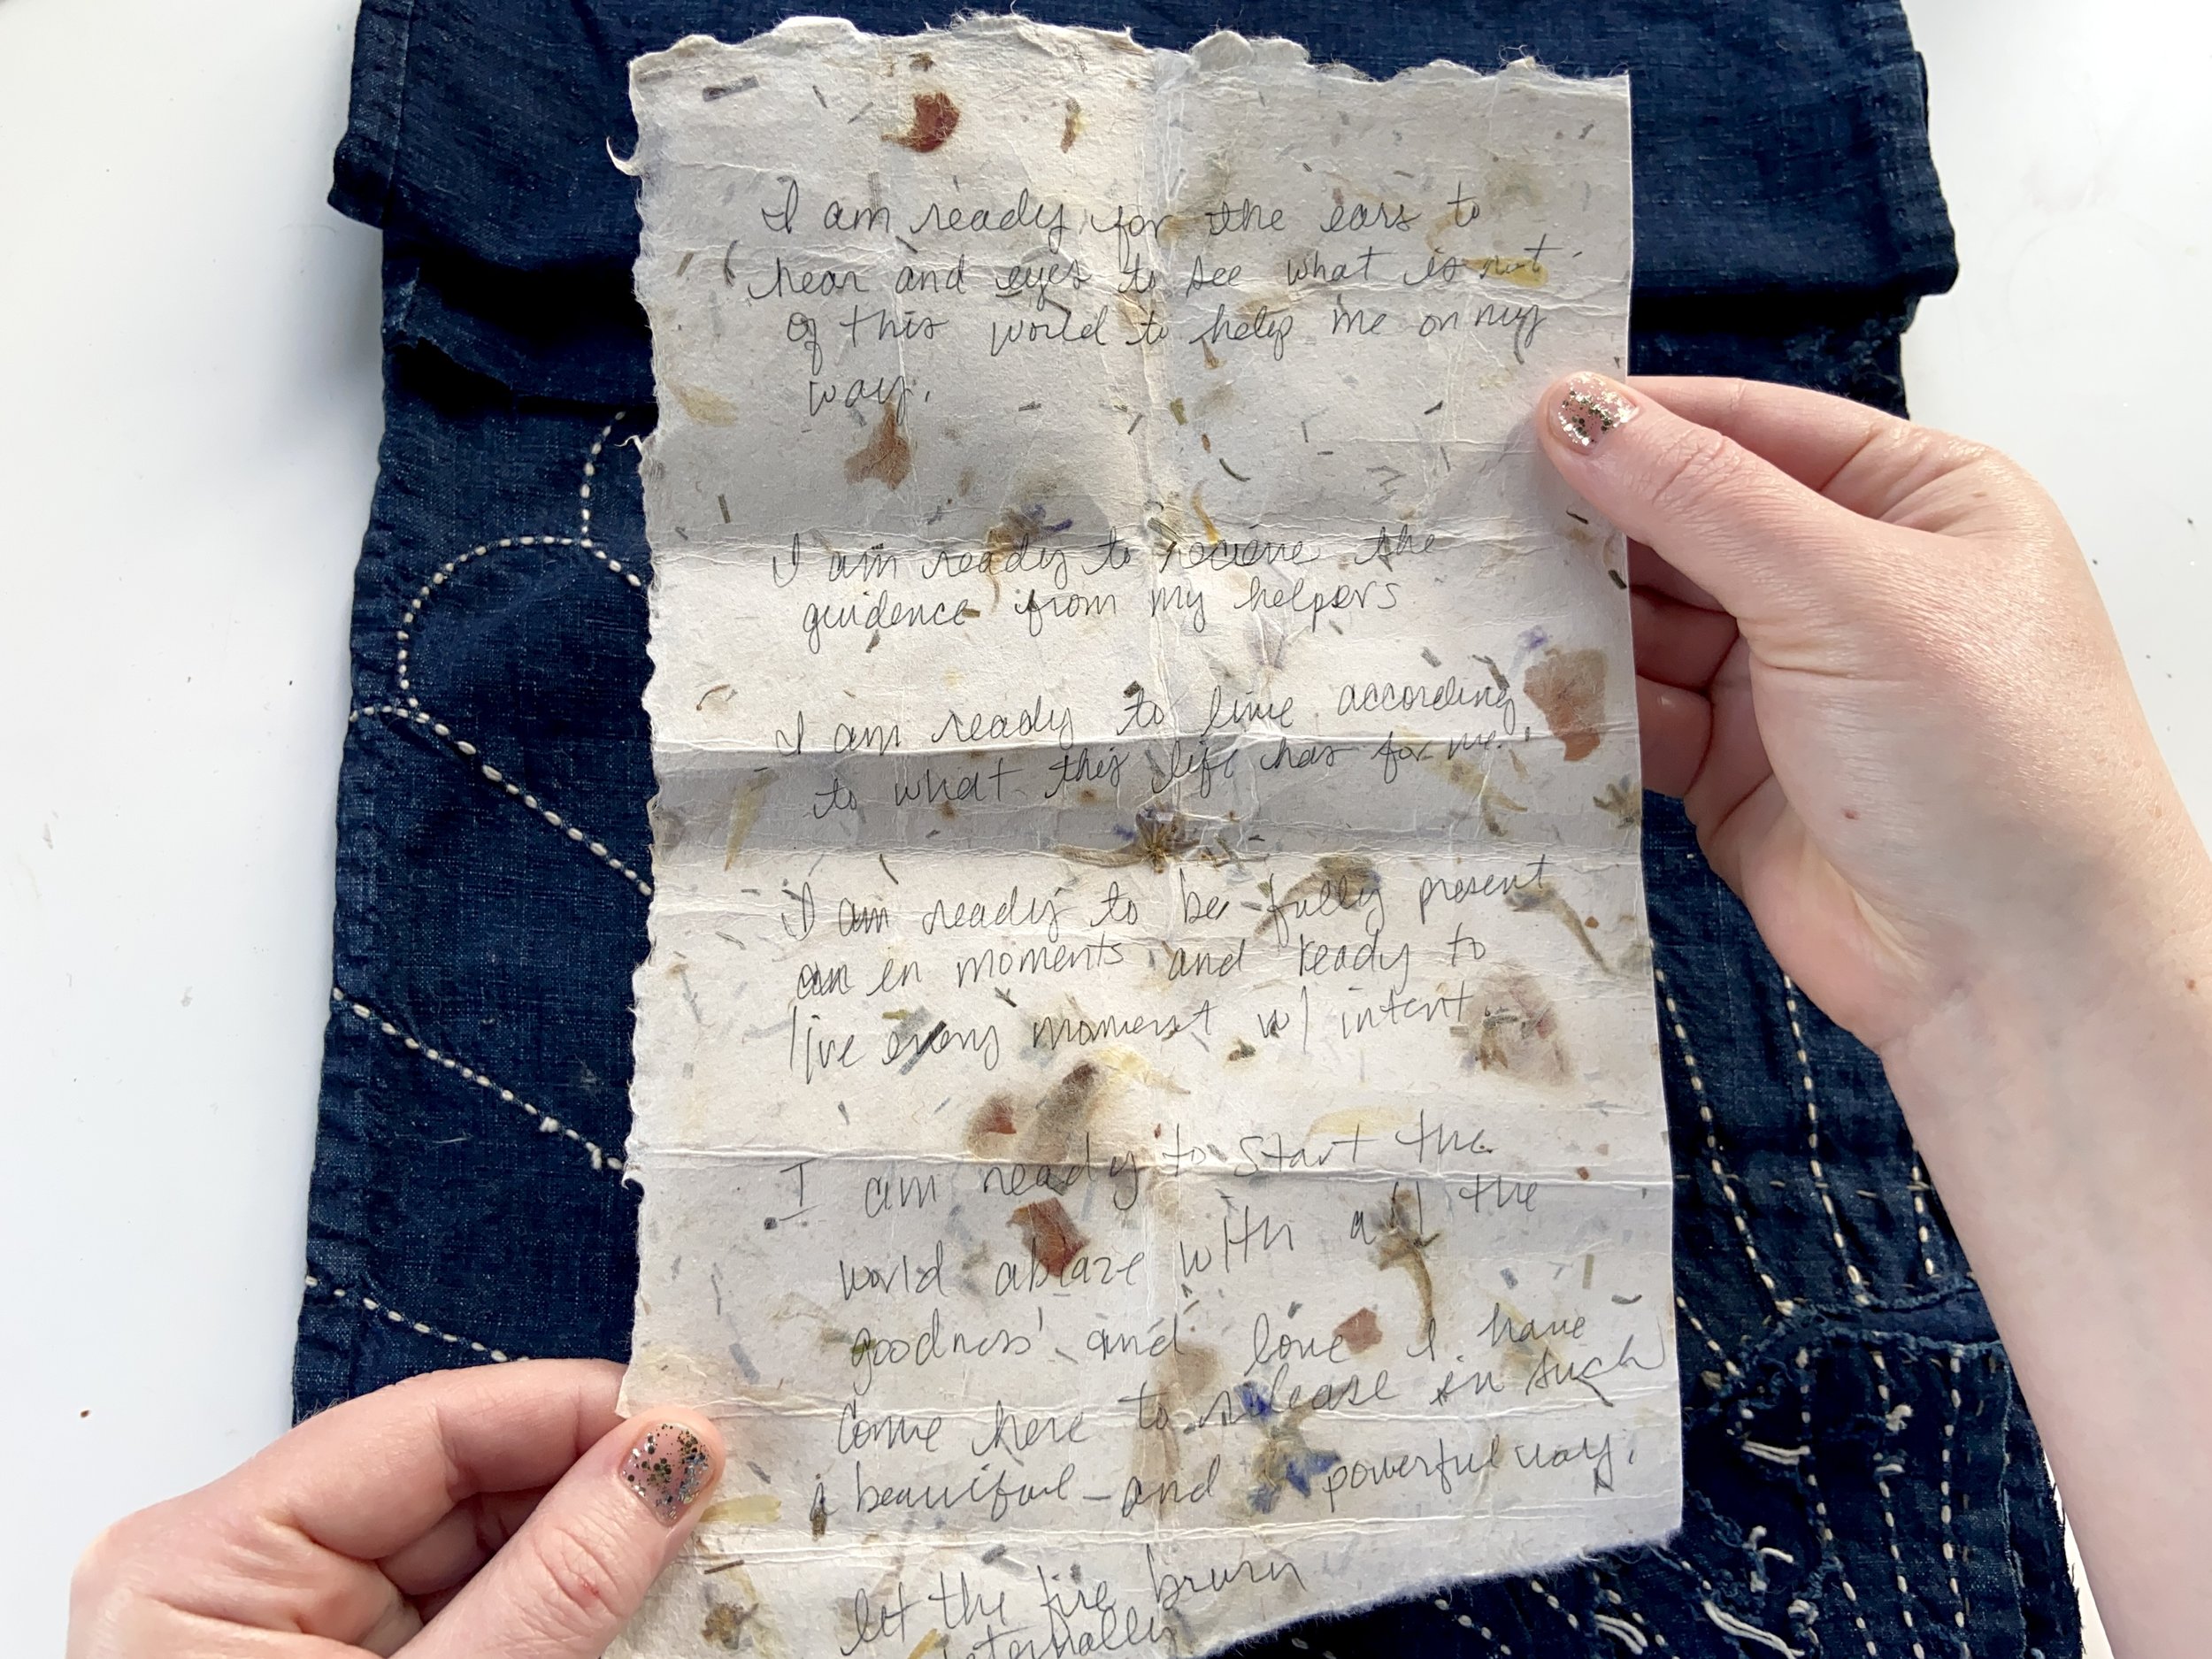 I am ready for the ears to
hear and eyes to see what is not
of this world to help me on my
way.
I am ready to recieve the
guidence from my helpers
I am ready to live according
to what this life has for me.
I am ready to be fully present
in moments and ready to
live every moment w/ intent.
I am ready to start the
world ablaze with all the
goodness and love I have
come here to release in such
a beautiful and powerful way.
let the fire brurn
eternally